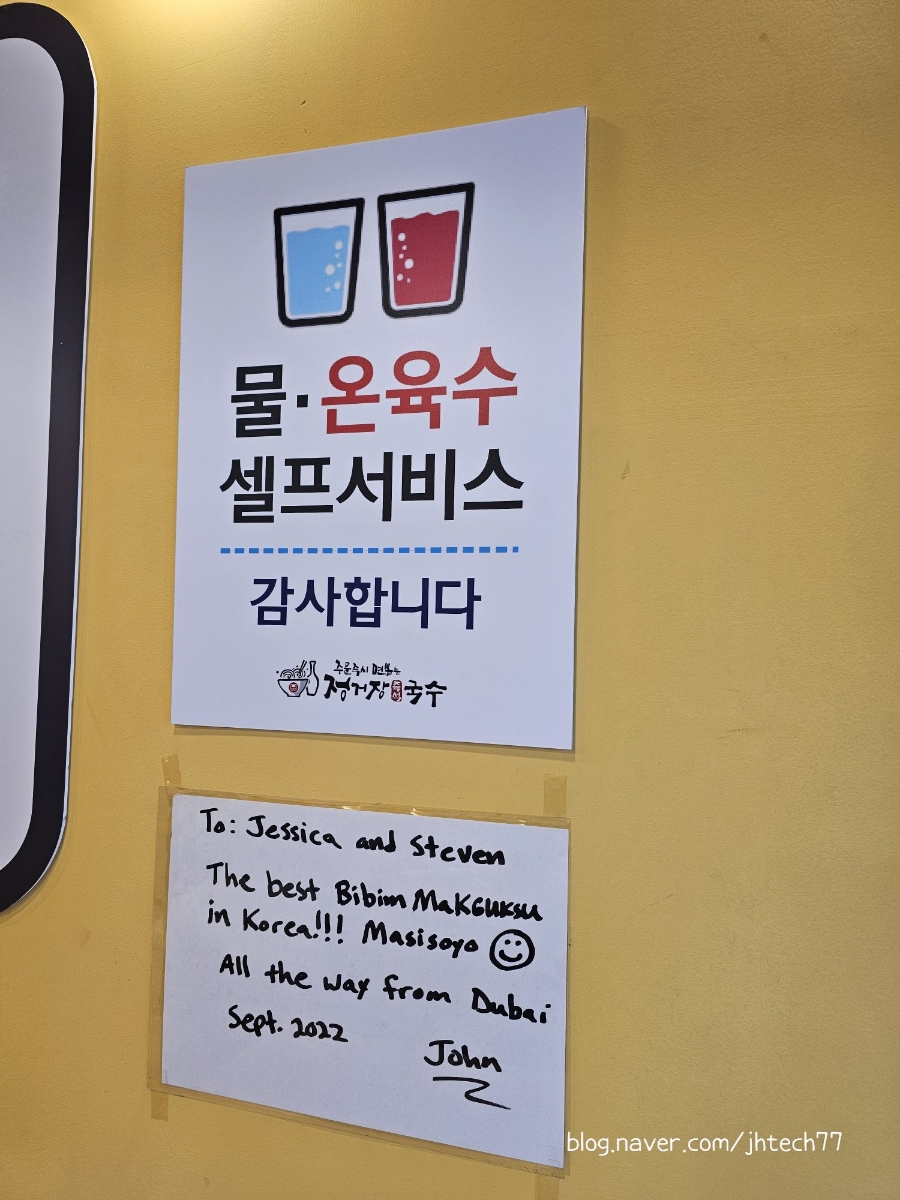 물·온육수
셀프서비스
감사합니다
주문즉시 면뽑는
정거장 즉석 국수
To: Jessica and Steven
The best Bibim Makguksu
in Korea!!! Masisoyo
All the way from Dubai
Sept. 2022
John
blog.naver.com/jhtech77